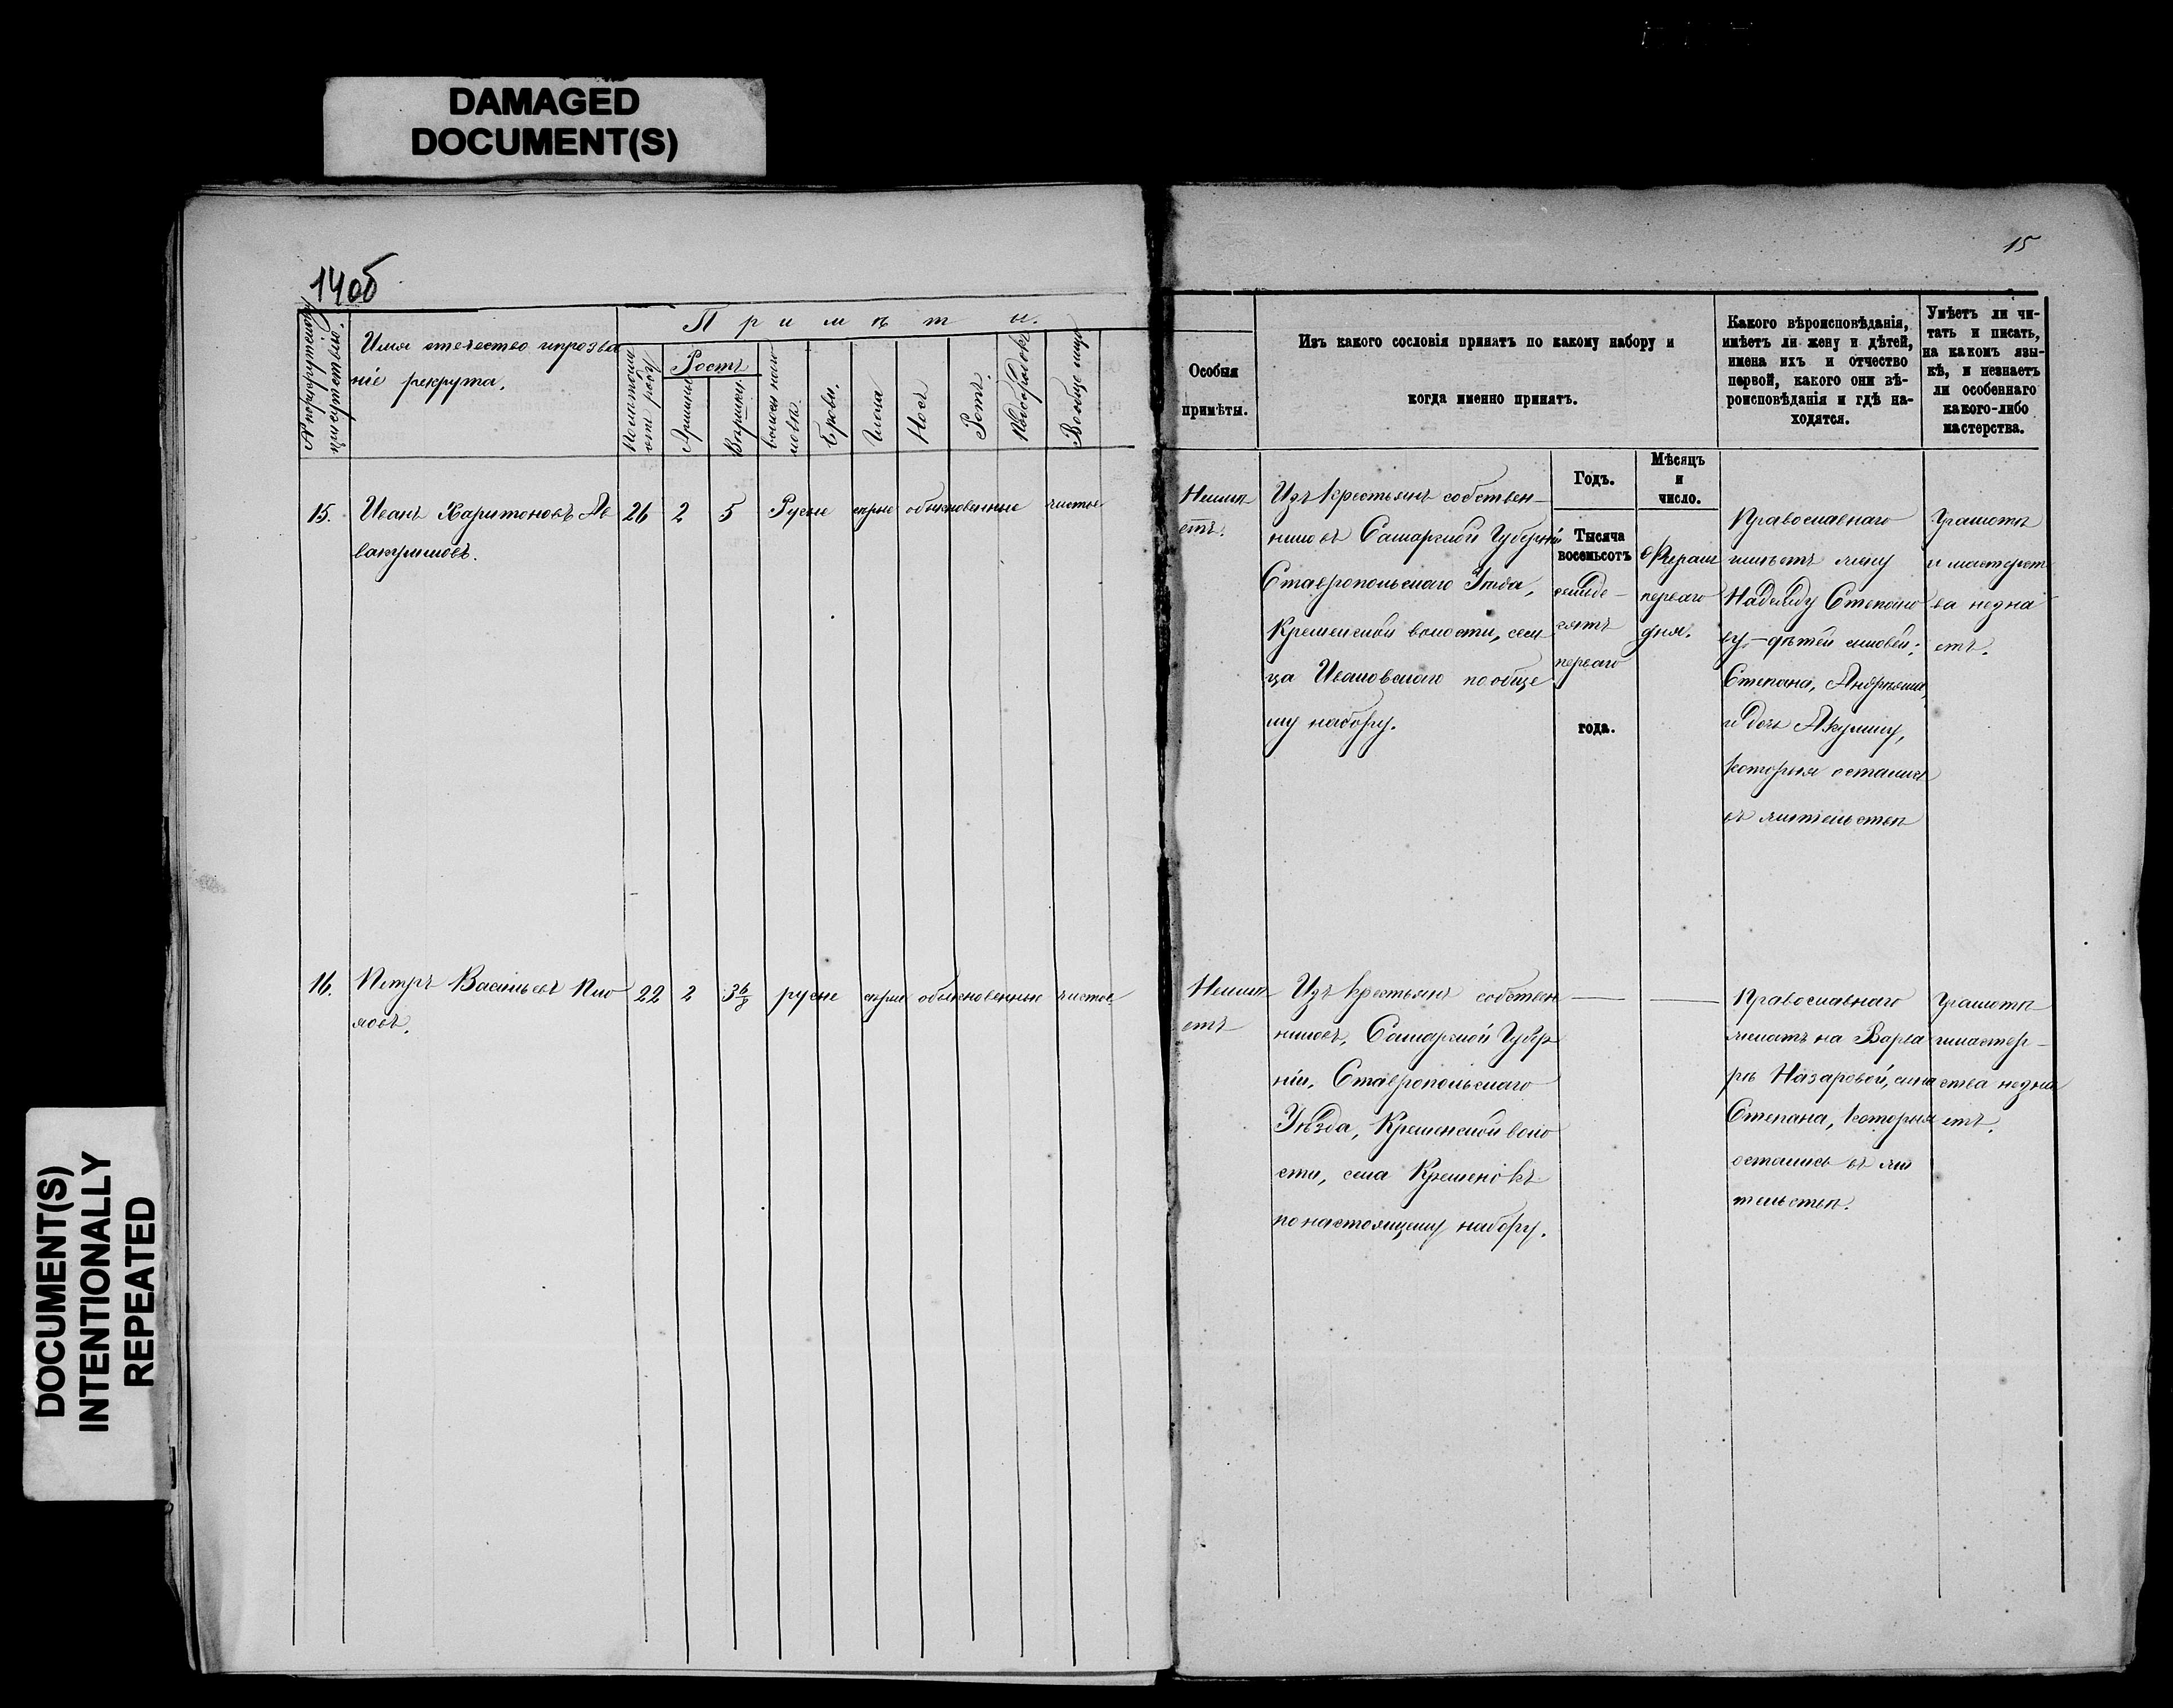 DAMAGED
DOCUMENT(S)
DOCUMENT(S)
INTENTIONALLY
REPEATED
14об
15
№ по рекрутскому
присутствію.
Имя отечество и прозва
ніе рекрута.
Примѣты.
Ростъ
Аршины
Вершки
Брови.
Глаза
Носъ
Ротъ.
Подбородокъ
Вообще лицо
Особыя
примѣты.
Изъ какого сословія принятъ по какому набору и
когда именно принятъ.
Какого вѣроисповѣданія,
имѣетъ ли жену и дѣтей,
имена ихъ и отчество
первой, какого они вѣ-
роисповѣданія и гдѣ на-
ходятся.
Умѣетъ ли чи-
тать и писать,
на какомъ язы-
кѣ, и незнаетъ
ли особеннаго
какого-либо
мастерства.
Годъ.
Мѣсяцъ
и
число.
15.
Иванъ Харитоновъ Ав
вакумовъ.
26 2 5 Русые серые обыкновенные чистое
Неимѣ
етъ.
Изъ крестьянъ собствен-
никовъ Самарской Губерніи
Ставропольскаго Уѣзда,
Крешенской волости, сель
ца Ивановскаго по обще
му набору.
Тысяча
восемьсотъ
семьде-
сятъ
перваго
года.
Февраля
перваго
дня.
Православнаго
имѣетъ жену
Надежду Степано
ву-дѣтей сыновей:
Степана, Андреяна,
и дочь Акулину,
которыя остались
въ жительствѣ
Грамотѣ
и мастерст
ва незна
етъ.
16.
Петръ Васильевъ Пи
ловъ.
22 2 3 6/8 русые серые обыкновенные чистое
Неимѣ
етъ
Изъ крестьянъ собствен
никовъ, Самарской Губер
ніи, Ставропольскаго
Уѣзда, Крешенской воло
сти, села Крешеновъ
по настоящему набору.
Православнаго
женатъ на Варва
рѣ Назаровой, сына
Степана, которыя
остались въ жи
тельствѣ.
Грамотѣ
и мастер-
ства незна
етъ.